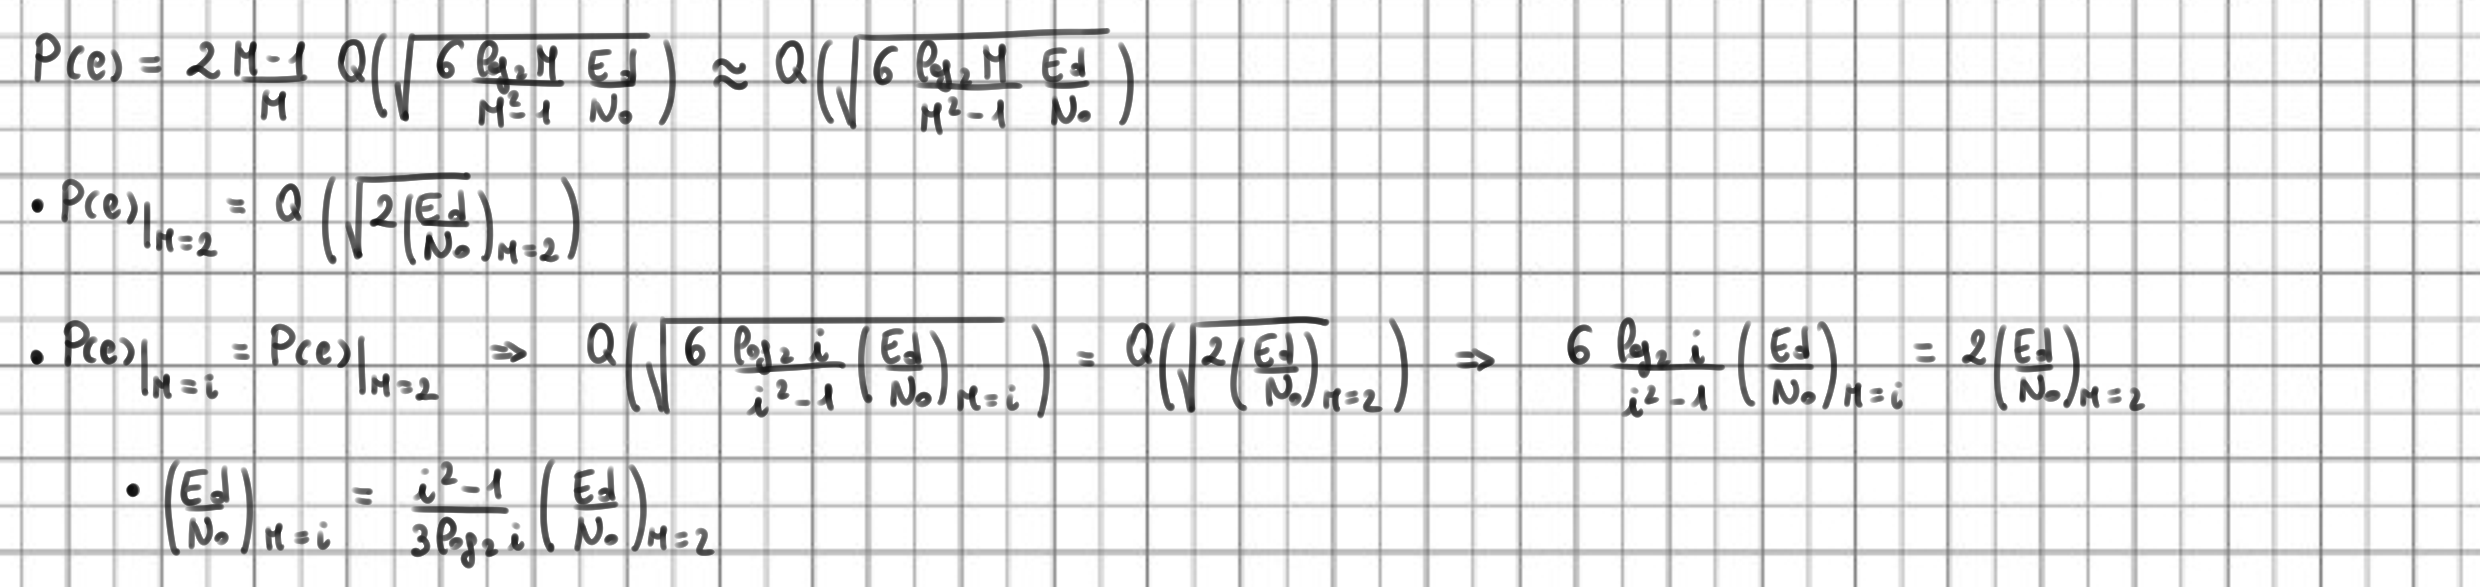 P(e) = 2 \frac{M-1}{M} Q(\sqrt{6 \frac{log_2 M}{M^2-1} \frac{Ed}{N_0}}) ≈ Q(\sqrt{6 \frac{log_2 M}{M^2-1} \frac{Ed}{N_0}})
• P(e)|_{M=2} = Q(\sqrt{2(\frac{Ed}{N_0})_{M=2}})
• P(e)|_{M=i} = P(e)|_{M=2} ⇒ Q(\sqrt{6 \frac{log_2 i}{i^2-1} (\frac{Ed}{N_0})_{M=i}}) = Q(\sqrt{2(\frac{Ed}{N_0})_{M=2}}) ⇒ 6 \frac{log_2 i}{i^2-1} (\frac{Ed}{N_0})_{M=i} = 2(\frac{Ed}{N_0})_{M=2}
• (\frac{Ed}{N_0})_{M=i} = \frac{i^2-1}{3 log_2 i} (\frac{Ed}{N_0})_{M=2}